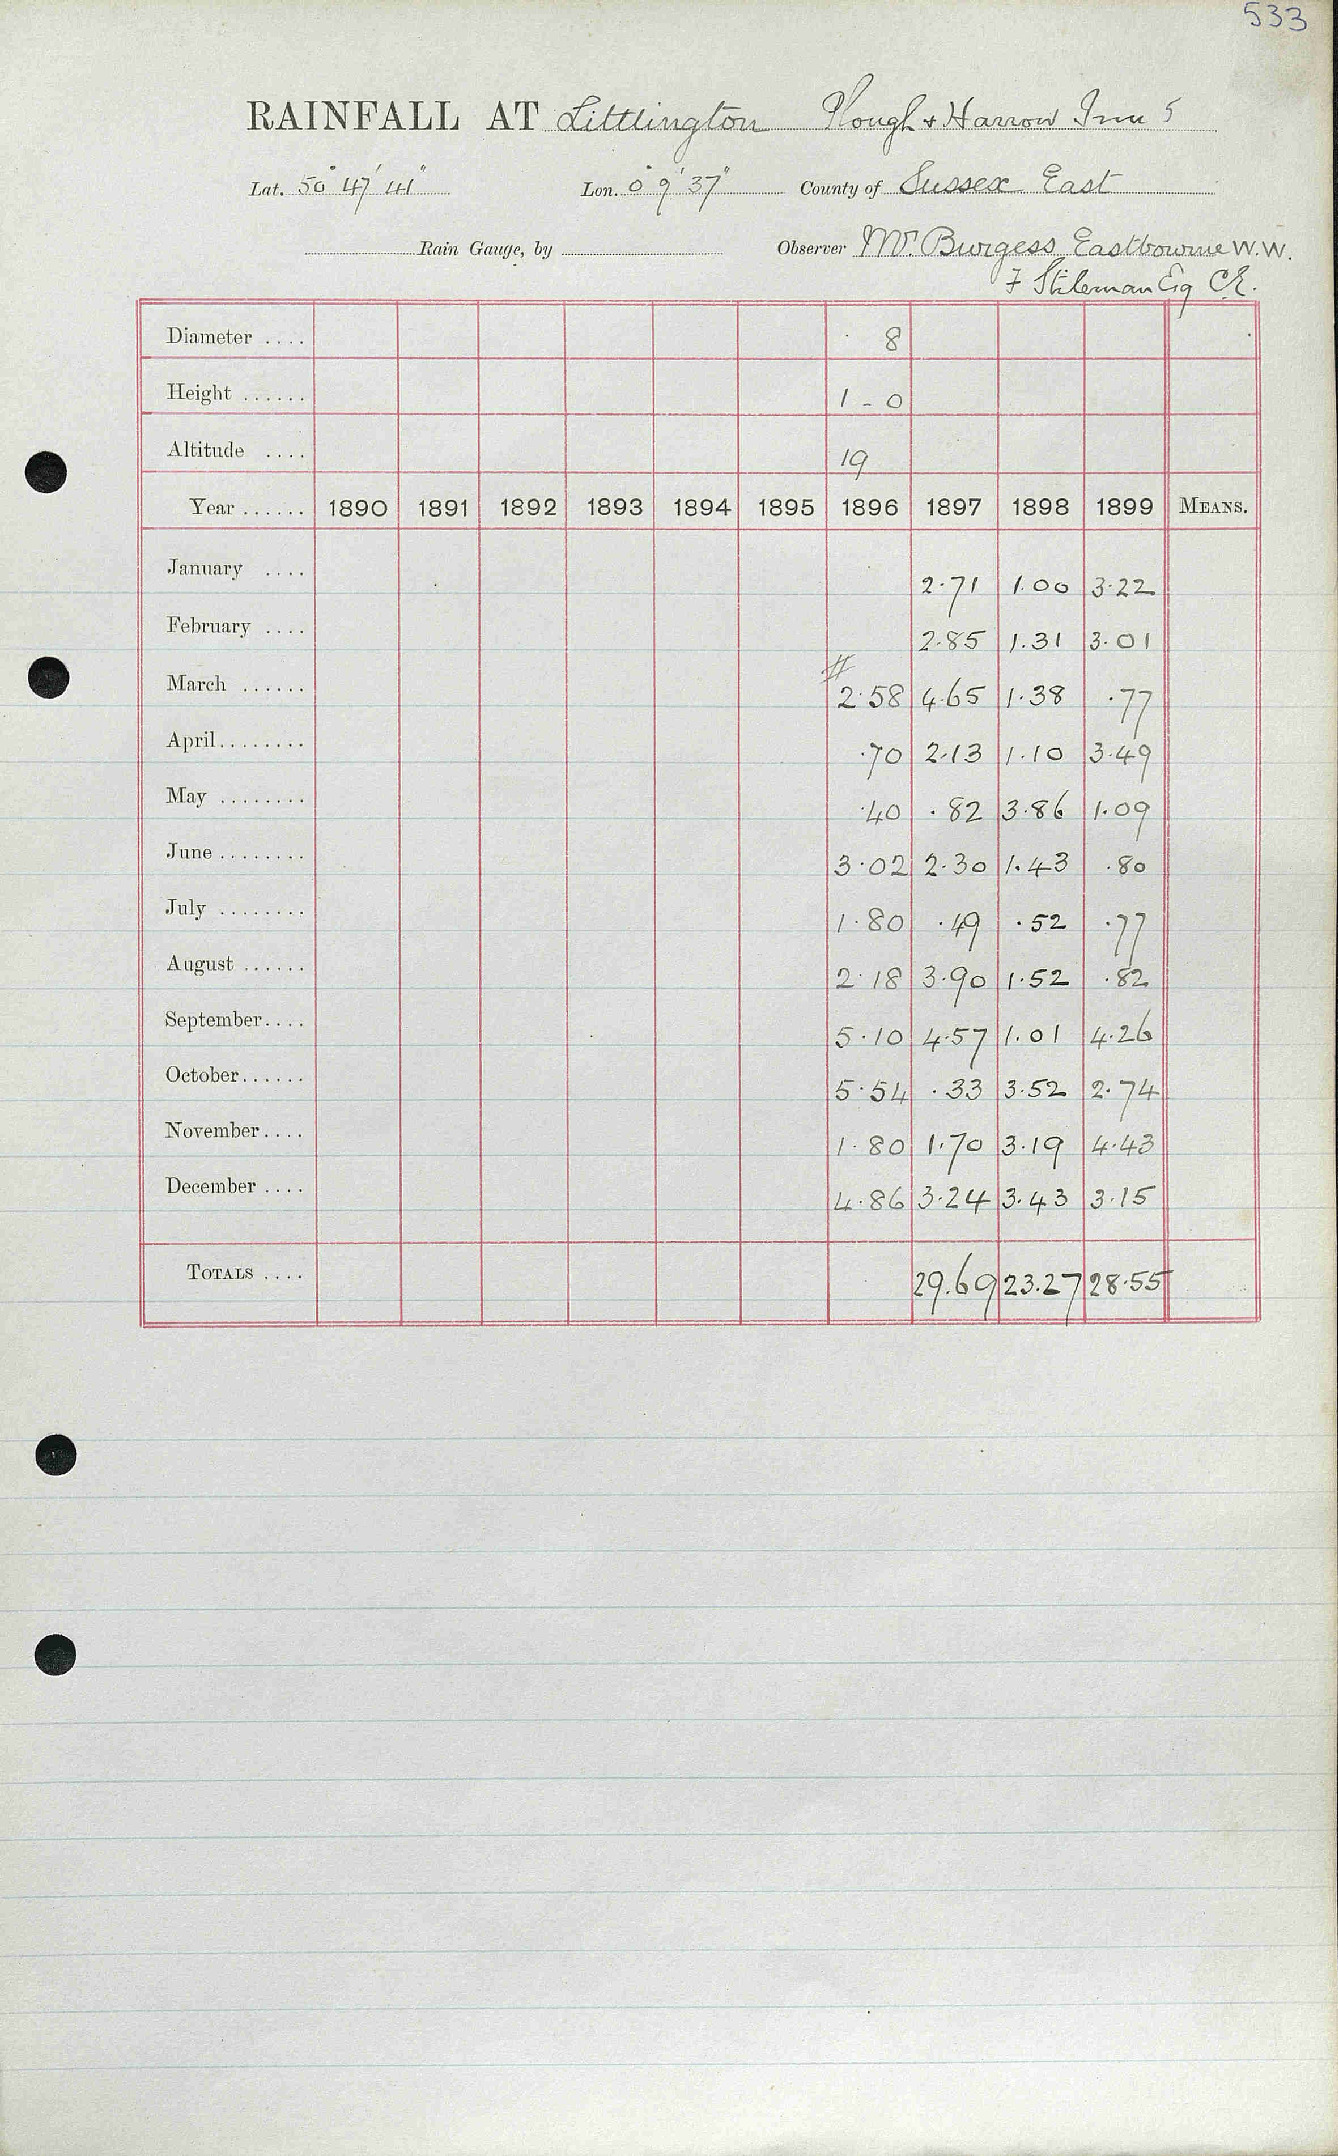 533
RAINFALL AT Littlington Plough & Harrow Inn 5
Lat. 50° 47' 41" Lon. 0° 9' 37" County of Sussex East
Rain Gauge, by Observer Mr. Burgess Eastbourne W.W.
F Stileman Esq C.E.
Diameter .... 8
Height ...... 1 - 0
Altitude .... 19
Year ...... 1890 1891 1892 1893 1894 1895 1896 1897 1898 1899 MEANS.
January .... 2.71 1.00 3.22
February .... 2.85 1.31 3.01
#
March ...... 2.58 4.65 1.38 .77
April ........ .70 2.13 1.10 3.49
May ........ .40 .82 3.86 1.09
June ........ 3.02 2.30 1.43 .80
July ........ 1.80 .49 .52 .77
August ...... 2.18 3.90 1.52 .82
September .... 5.10 4.57 1.01 4.26
October ...... 5.54 .33 3.52 2.74
November .... 1.80 1.70 3.19 4.43
December .... 4.86 3.24 3.43 3.15
TOTALS .... 29.69 23.27 28.55